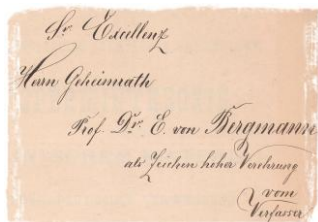 Sr. Excellenz
Herrn Geheimrath
Prof. Dr. E. von Bergmann
als Zeichen hoher Verehrung
vom
Verfasser